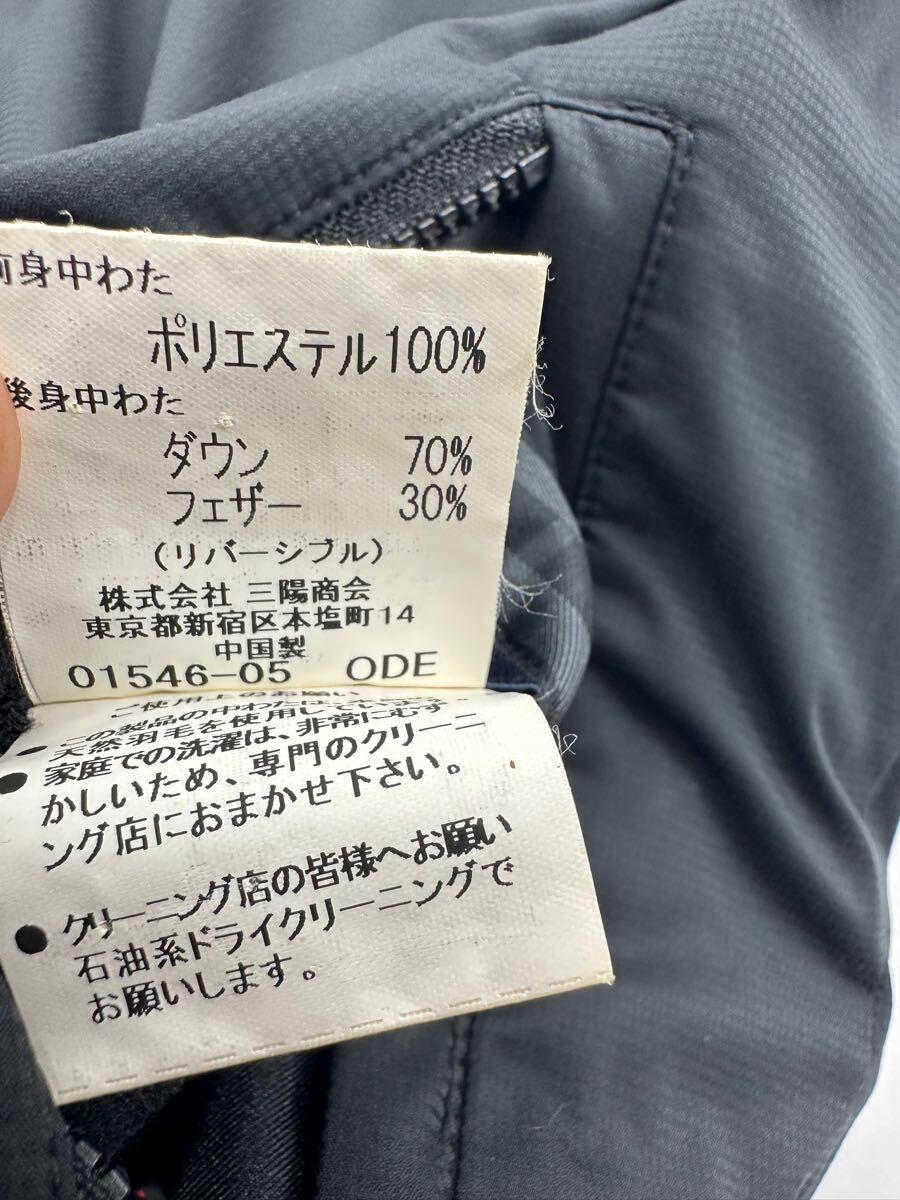 前身中わた
ポリエステル100%
後身中わた
ダウン 70%
フェザー 30%
(リバーシブル)
株式会社 三陽商会
東京都新宿区本塩町14
中国製
01546-05 ODE
ご使用上のお願い
●この製品の中わたは
天然羽毛を使用しています。
●家庭での洗濯は、非常にむず
かしいため、専門のクリーニ
ング店におまかせ下さい。
●クリーニング店の皆様へお願い
石油系ドライクリーニングで
お願いします。